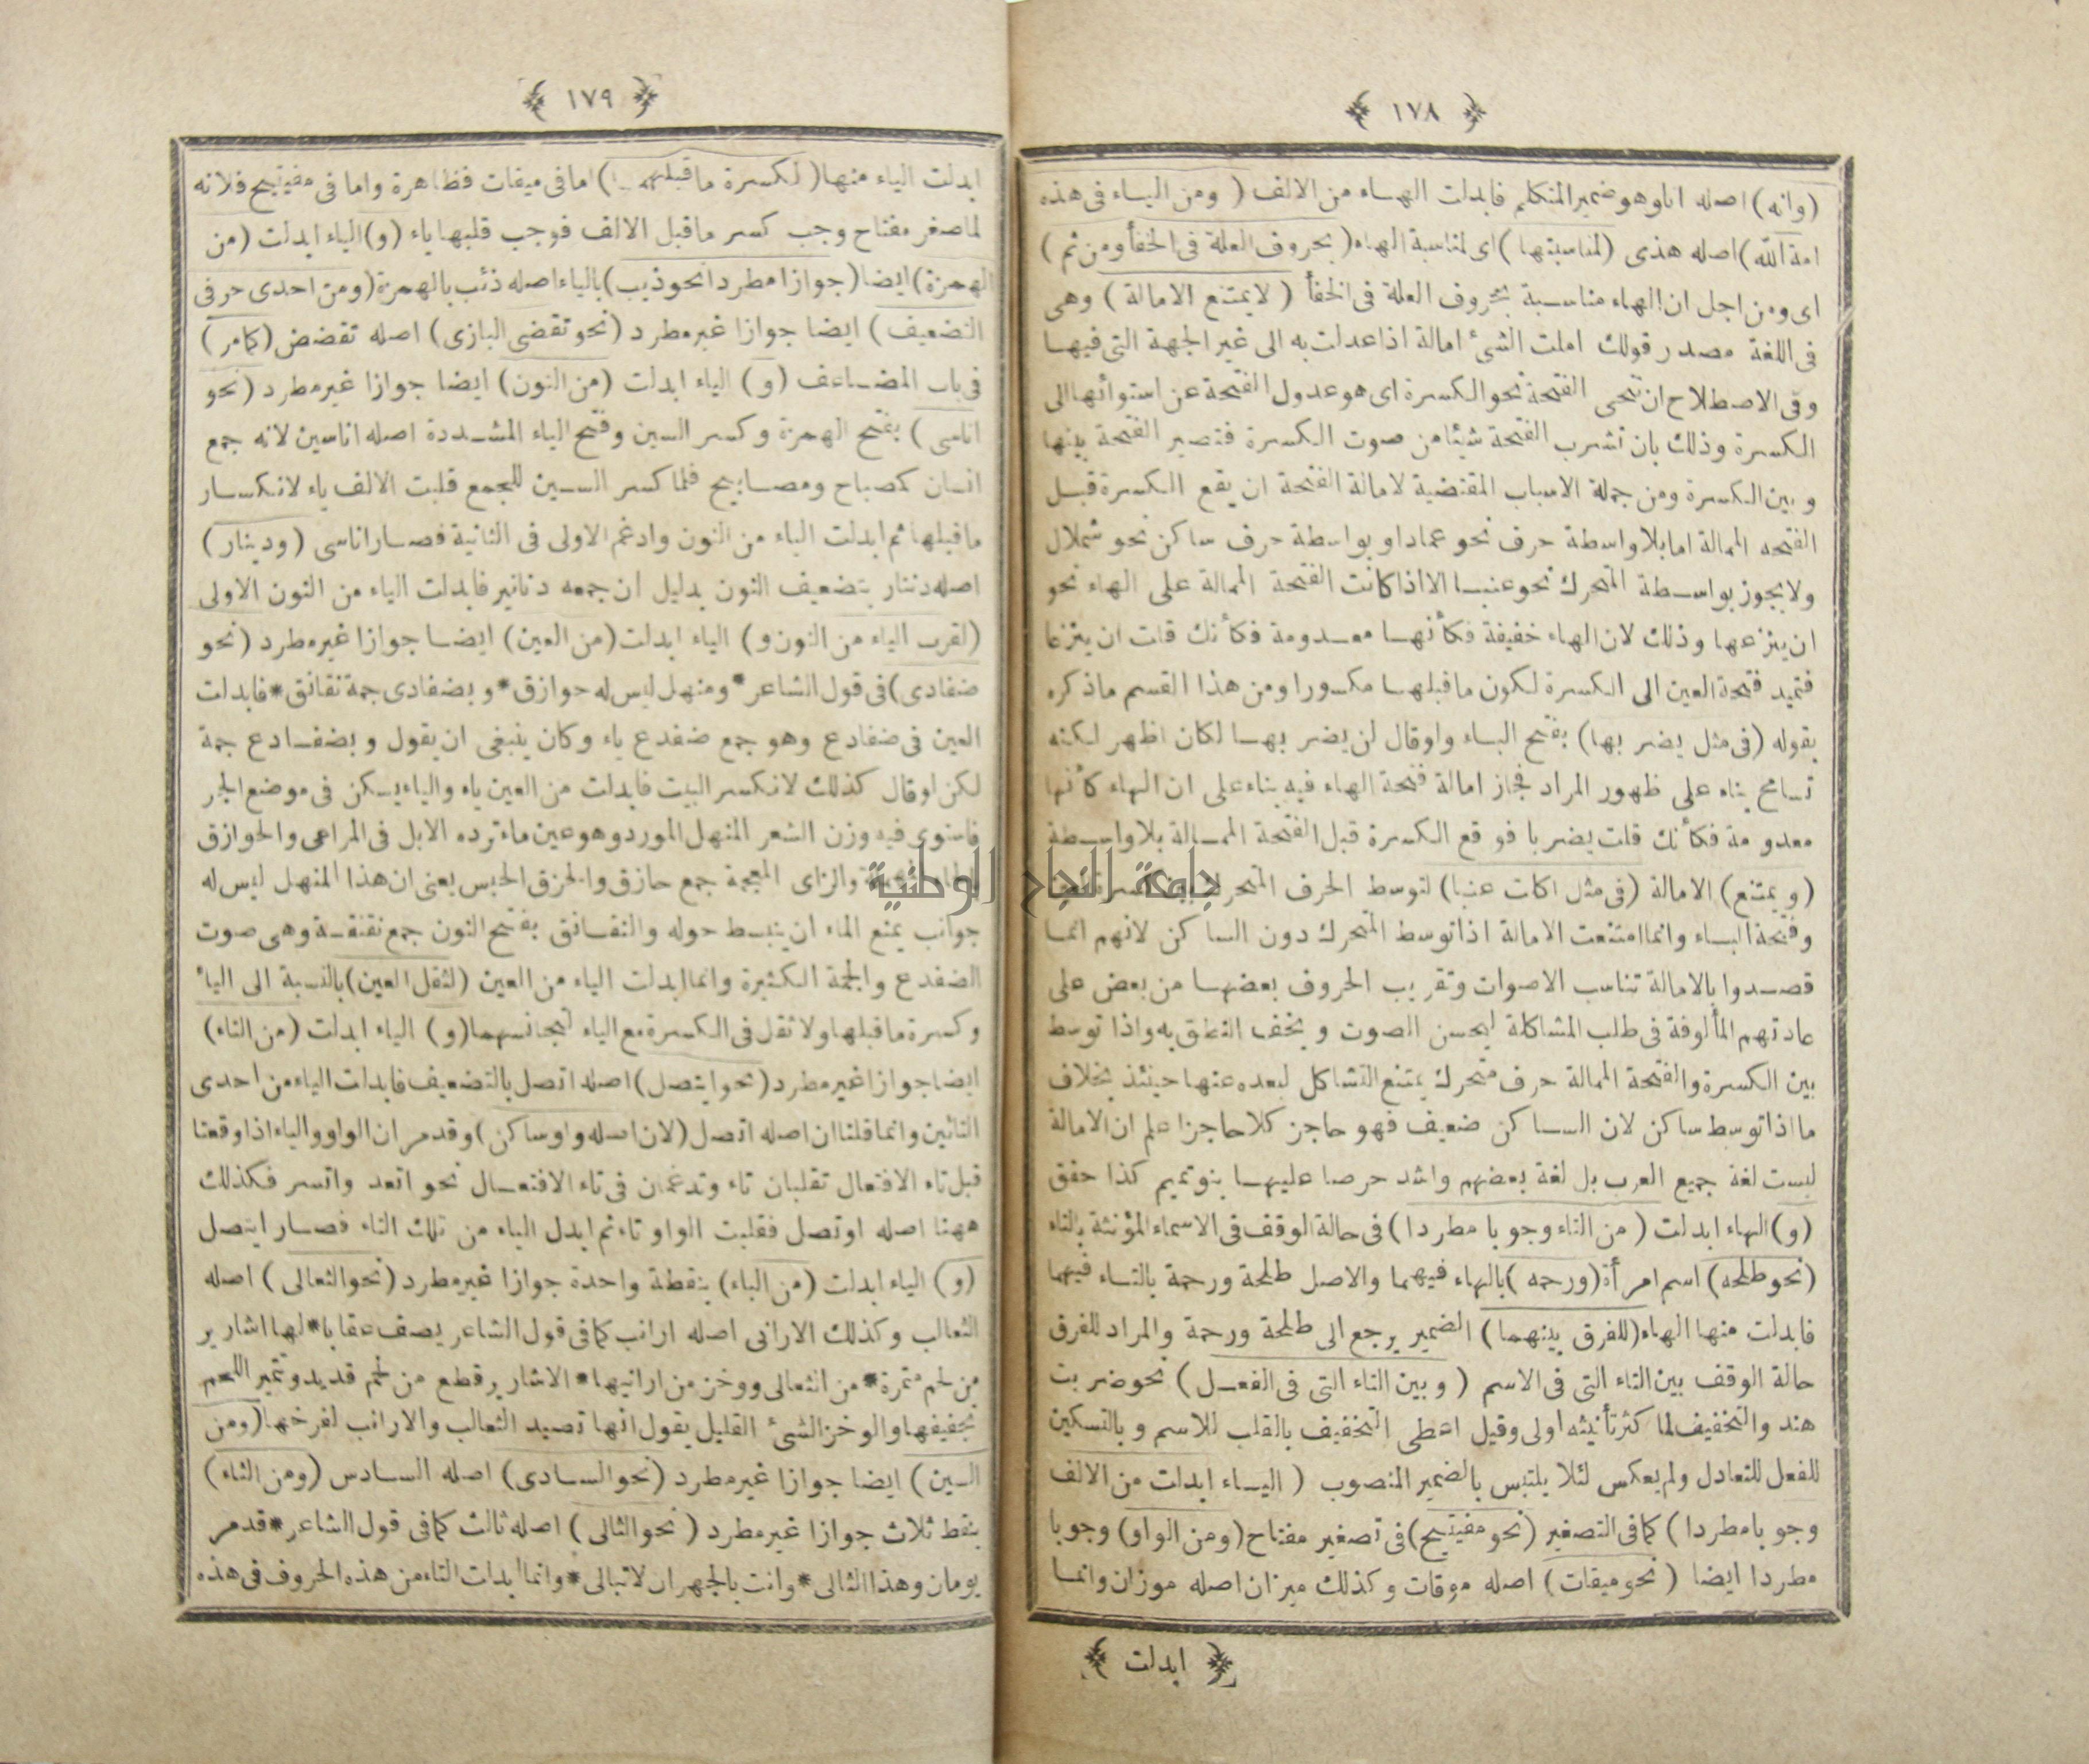 ﴿ ١٧٨ ﴾
(وانه) اصله انا وهو ضمير المتكلم فابدلت الهاء من الالف (ومن الياء فى هذه
امة الله) اصله هذى (لمناسبتها) اى لمناسبة الهاء (بحروف العلة فى الخفأ ومن ثم)
اى ومن اجل ان الهاء مناسبة بحروف العلة فى الخفأ (لايمتنع الامالة) وهى
فى اللغة مصدر قولك املت الشئ امالة اذا عدلت به الى غير الجهة التى فيها
وفى الاصطلاح ان تنحى الفتحة نحو الكسرة اى هو عدول الفتحة عن استوائها الى
الكسرة وذلك بان تشرب الفتحة شيئا من صوت الكسرة فتصير الفتحة بينها
وبين الكسرة ومن جملة الاسباب المقتضية لامالة الفتحة ان يقع الكسرة قبل
الفتحه الممالة اما بلا واسطة حرف نحو عماد او بواسطة حرف ساكن نحو شملال
ولا يجوز بواسطة المتحرك نحو عنبا الا اذا كانت الفتحة الممالة على الهاء نحو
ان ينزعها وذلك لان الهاء خفيفة فكأنها معدومة فكأنك قلت ان ينزعا
فتميد فتحة العين الى الكسرة لكون ماقبلها مكسورا ومن هذا القسم ماذكره
بقوله (فى مثل يضر بها) بفتح الباء ولوقال لن يضر بها لكان اظهر لكنه
تسامح بناء على ظهور المراد فجاز امالة فتحة الهاء فيه بناء على ان الهاء كأنها
معدومة فكأنك قلت يضربا فوقع الكسرة قبل الفتحة الممالة بلا واسطة
(ويمتنع) الامالة (فى مثل اكلت عنبا) لتوسط الحرف المتحرك بين كسرة العين
وفتحة الباء وانما امتنعت الامالة اذا توسط المتحرك دون الساكن لانهم انما
قصدوا بالامالة تناسب الاصوات وتقريب الحروف بعضها من بعض على
عادتهم المألوفة فى طلب المشاكلة ليحسن الصوت ويخف النطق به واذا توسط
بين الكسرة والفتحة الممالة حرف متحرك يمتنع التشاكل لبعده عنها حينئذ بخلاف
ما اذا توسط ساكن لان الساكن ضعيف فهو حاجز كلا حاجز اعلم ان الامالة
ليست لغة جميع العرب بل لغة بعضهم واشد حرصا عليها بنو تميم كذا حقق
(و) الهاء ابدلت (من التاء وجوبا مطردا) فى حالة الوقف فى الاسماء المؤنثة بالتاء
(نحو طلحه) اسم امرأة (ورحمه) بالهاء فيهما والاصل طلحة ورحمة بالتاء فيهما
فابدلت منها الهاء (للفرق بينهما) الضمير يرجع الى طلحة ورحمة والمراد للفرق
حالة الوقف بين التاء التى فى الاسم (وبين التاء التى فى الفعل) نحو ضربت
هند والتخفيف لما كثر تأنيثه اولى وقيل اعطى التخفيف بالقلب للاسم وبالتسكين
للفعل للتعادل ولم يعكس لئلا يلتبس بالضمير المنصوب (الياء ابدلت من الالف
وجوبا مطردا) كما فى التصغير (نحو مفيتيح) فى تصغير مفتاح (ومن الواو) وجوبا
مطردا ايضا (نحو ميقات) اصله موقات وكذلك ميزان اصله موزان وانما
﴿ ابدلت ﴾
﴿ ١٧٩ ﴾
ابدلت الياء منها (لكسرة ماقبلهما) اما فى ميقات فظاهرة واما فى مفيتيح فلانه
لما صغر مفتاح وجب كسر ماقبل الالف فوجب قلبها ياء (و) الياء ابدلت (من
الهمزة) ايضا (جوازا مطردا نحو ذيب) بالياء اصله ذئب بالهمزة (ومن احدى حرفى
التضعيف) ايضا جوازا غير مطرد (نحو تقضى البازى) اصله تقضض (كمامر)
فى باب المضاعف (و) الياء ابدلت (من النون) ايضا جوازا غير مطرد (نحو
اناسى) بفتح الهمزة وكسر السين وفتح الياء المشددة اصله اناسين لانه جمع
انسان كمصباح ومصابيح فلما كسر السين للجمع قلبت الالف ياء لانكسار
ماقبلها ثم ابدلت الياء من النون وادغم الاولى فى الثانية فصار اناسى (ودينار)
اصله دننار بتضعيف النون بدليل ان جمعه دنانير فابدلت الياء من النون الاولى
(لقرب الياء من النون و) الياء ابدلت (من العين) ايضا جوازا غير مطرد (نحو
ضفادى) فى قول الشاعر * ومنهل ليس له حوازق * وبضفادى جمة نقانق * فابدلت
العين فى ضفادع وهو جمع ضفدع ياء وكان ينبغى ان يقول وبضفادع جمة
لكن لوقال كذلك لانكسر البيت فابدلت من العين ياء والياء يسكن فى موضع الجر
فاستوى فيه وزن الشعر المنهل المورد وهو عين ماء ترده الابل فى المراعى والحوازق
بالحاء المهملة والزاى المعجمة جمع حازق والحزق الحبس يعنى ان هذا المنهل ليس له
جوانب يمنع الماء ان ينبسط حوله والنقانق بفتح النون جمع نقنقة وهى صوت
الضفدع والجمة الكثيرة وانما ابدلت الياء من العين (لثقل العين) بالنسبة الى الياء
وكسرة ماقبلها ولا ثقل فى الكسرة مع الياء لتجانسهما (و) الياء ابدلت (من التاء)
ايضا جوازا غير مطرد (نحو ايتصل) اصله اتصل بالتضعيف فابدلت الياء من احدى
التائين وانما قلنا ان اصله اتصل (لان اصله واو ساكن) وقد مر ان الواو والياء اذا وقعتا
قبل تاء الافتعال تقلبان تاء وتدغمان فى تاء الافتعال نحو اتعد واتسر فكذلك
ههنا اصله اوتصل فقلبت الواو تاء ثم ابدل الياء من تلك التاء فصار ايتصل
(و) الياء ابدلت (من الباء) بنقطة واحدة جوازا غير مطرد (نحو الثعالى) اصله
الثعالب وكذلك الارانى اصله ارانب كما فى قول الشاعر يصف عقابا * لها اشارير
من لحم متمرة * من الثعالى ووخز من ارانيها * الاشارير قطع من لحم قديد وتتمير اللحم
تجفيفها والوخز الشئ القليل يقول انها تصيد الثعالب والارانب لفرخها (ومن
السين) ايضا جوازا غير مطرد (نحو السادى) اصله السادس (ومن الثاء)
بنقط ثلاث جوازا غير مطرد (نحو الثالى) اصله ثالث كما فى قول الشاعر * قد مر
يومان وهذا الثالى * وانت بالهجران لاتبالى * وانما ابدلت الياء من هذه الحروف فى هذه
جامعة النجاح الوطنية